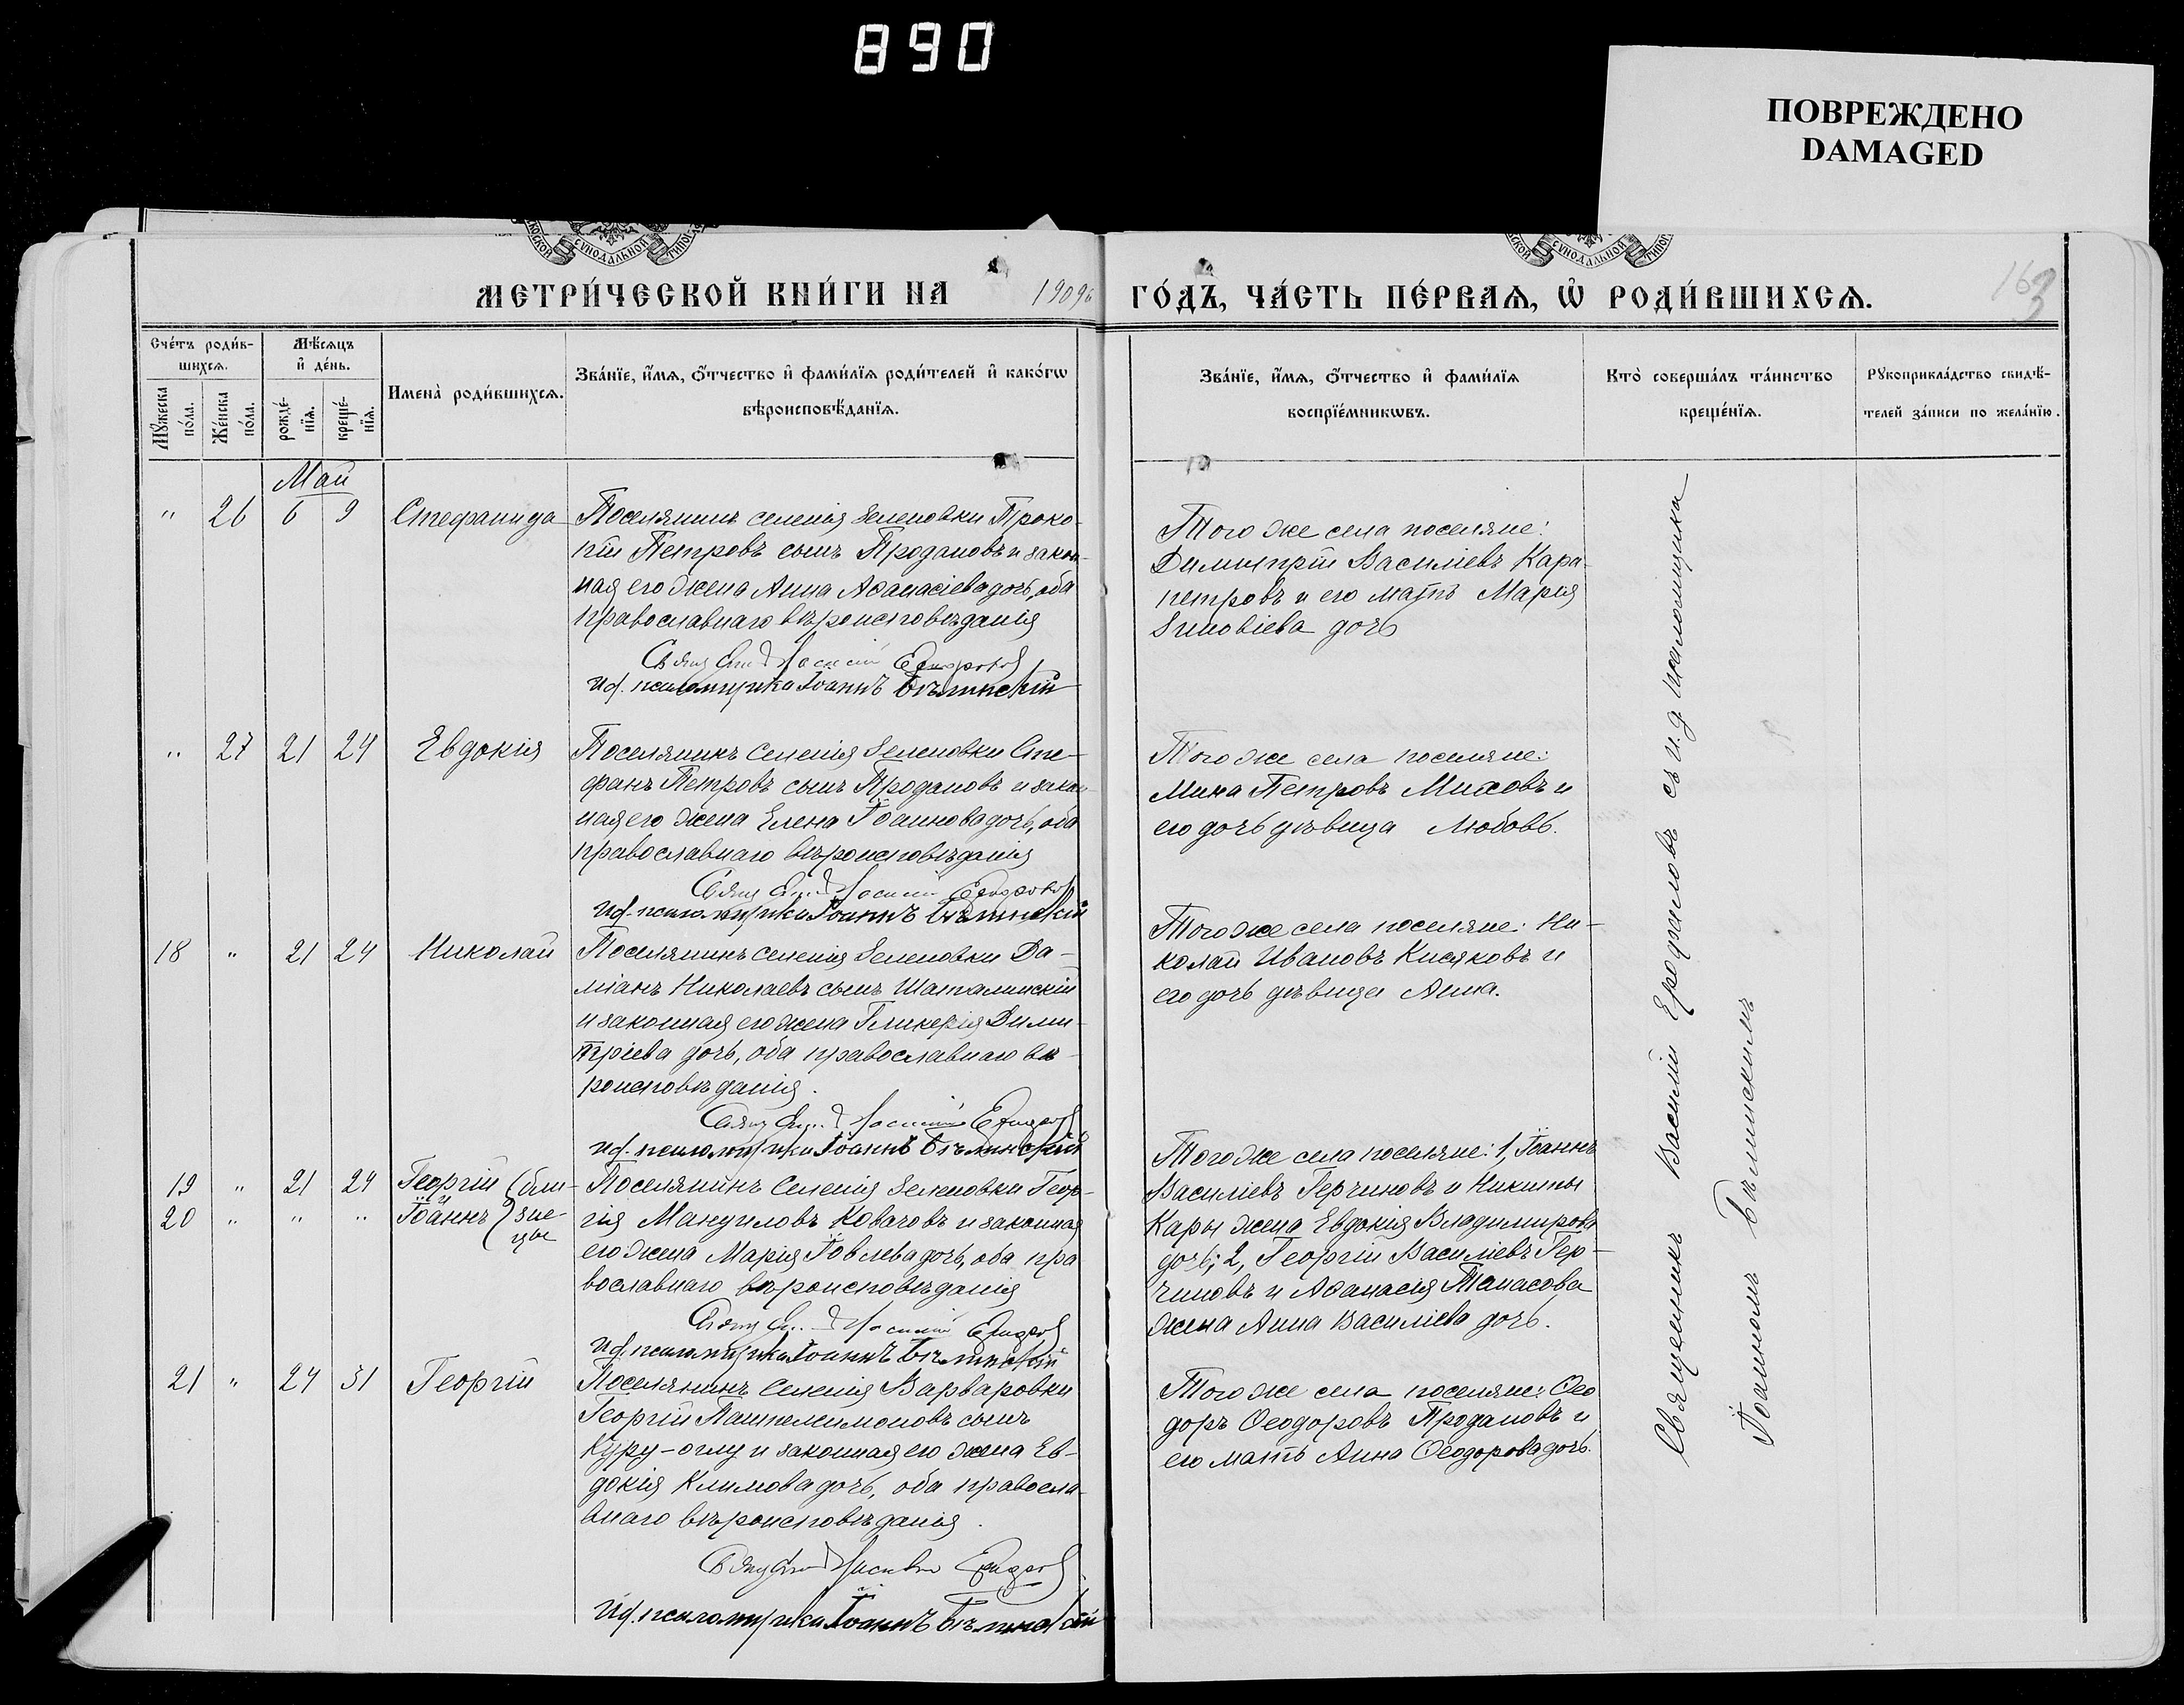 890
ПОВРЕЖДЕНО
DAMAGED
МЕТРИ́ЧЕСКОЙ КНИ́ГИ НА 1909
ГО́ДЪ, ЧА́СТЬ ПЕ́РВАѦ, Ѡ҆ РОДИ́ВШИХСѦ.
163
Сче́тъ роди́в-
шихсѧ.
Мꙋ́жеска по́ла.
Же́нска по́ла.
Мѣ́сѧцъ
и҆ де́нь.
рожде́-
нїѧ.
креще́-
нїѧ.
Имена̀ роди́вшихсѧ.
Зва́нїе, и҆́мѧ, ѻ҆́тчество и҆ фами́лїѧ роди́телей и҆ како́гѡ
вѣроисповѣ́данїѧ.
Зва́нїе, и҆́мѧ, ѻ҆́тчество и҆ фами́лїѧ
воспрїе́мникѡвъ.
Кто̀ соверша́лъ та́инство
креще́нїѧ.
Рꙋкоприкла́дство свидѣ́-
телей за́писи по жела́нїю.
Май
" 26 6 9 Стефанида
Поселянинъ селенія Зеленовки Проко-
пій Петровъ сынъ Продановъ и закон-
ная его жена Анна Аѳанасіева дочь, оба
православнаго вѣроисповѣданія
Ид. псаломщика Іоаннъ Бѣлинскій
Того же села поселяне:
Димитрій Василіевъ Кара-
петровъ и его мать Марія
Зиновіева дочь
" 27 21 24 Евдокія
Поселянинъ селенія Зеленовки Сте-
фанъ Петровъ сынъ Продановъ и закон-
ная его жена Елена Іоаннова дочь, оба
православнаго вѣроисповѣданія
Ид. псаломщика Іоаннъ Бѣлинскій
Того же села поселяне:
Мина Петровъ Миховъ и
его дочь дѣвица Любовь.
18 " 21 24 Николай
Поселянинъ селенія Зеленовки Да-
міанъ Николаевъ сынъ Шаталинскій
и законная его жена Гликерія Дими-
тріева дочь, оба православнаго вѣ-
роисповѣданія.
Ид. псаломщика Іоаннъ Бѣлинскій
Того же села поселяне: Ни-
колай Ивановъ Кисяковъ и
его дочь дѣвица Анна.
19 " 21 24 Георгій (бли-
20 " " " и Іоаннъ зне-
цы
Поселянинъ селенія Зеленовки Геор-
гія Мануиловъ Ковачовъ и законная
его жена Марія Іовлева дочь, оба пра
вославнаго вѣроисповѣданія
Ид. псаломщика Іоаннъ Бѣлинскій
Того же села поселяне: 1, Іоаннъ
Василіевъ Герчиновъ и Никиты
Кары жена Евдокія Владимирова
дочь; 2, Георгій Василіевъ Гер-
чиновъ и Аѳанасія Танасова
жена Анна Василіева дочь.
21 " 24 31 Георгій
Поселянинъ селенія Варваровки
Георгій Пантелимоновъ сынъ
Куру-оглу и законная его жена Ев-
докія Климова дочь, оба правосла-
внаго вѣроисповѣданія.
Ид. псаломщика Іоаннъ Бѣлинскій
Того же села поселяне: Ѳео
доръ Ѳеодоровъ Продановъ и
его мать Анна Ѳеодорова дочь.
Священникъ Василій съ и.д. псаломщика
Іоанномъ Бѣлинскимъ